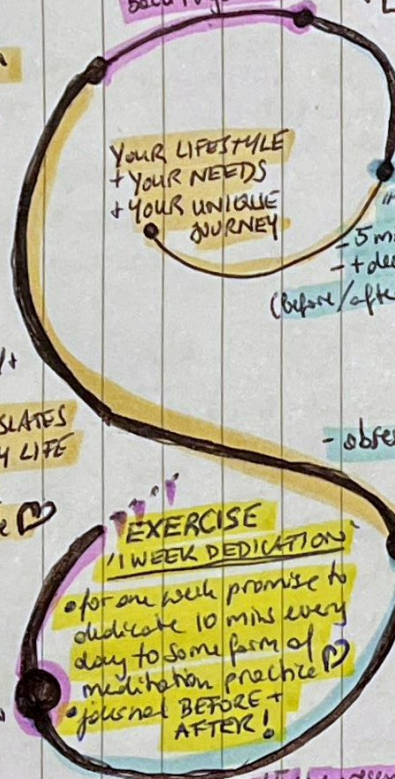 YOUR LIFESTYLE
+ YOUR NEEDS
+ YOUR UNIQUE
JOURNEY
- 5 m
- + de
(before/afte
/+
SLATES
Y LIFE
- obse
EXERCISE
'1 WEEK DEDICATION'
• for one week promise to
dedicate 10 mins every
day to some form of
meditation practice ♡
• journal BEFORE +
AFTER!